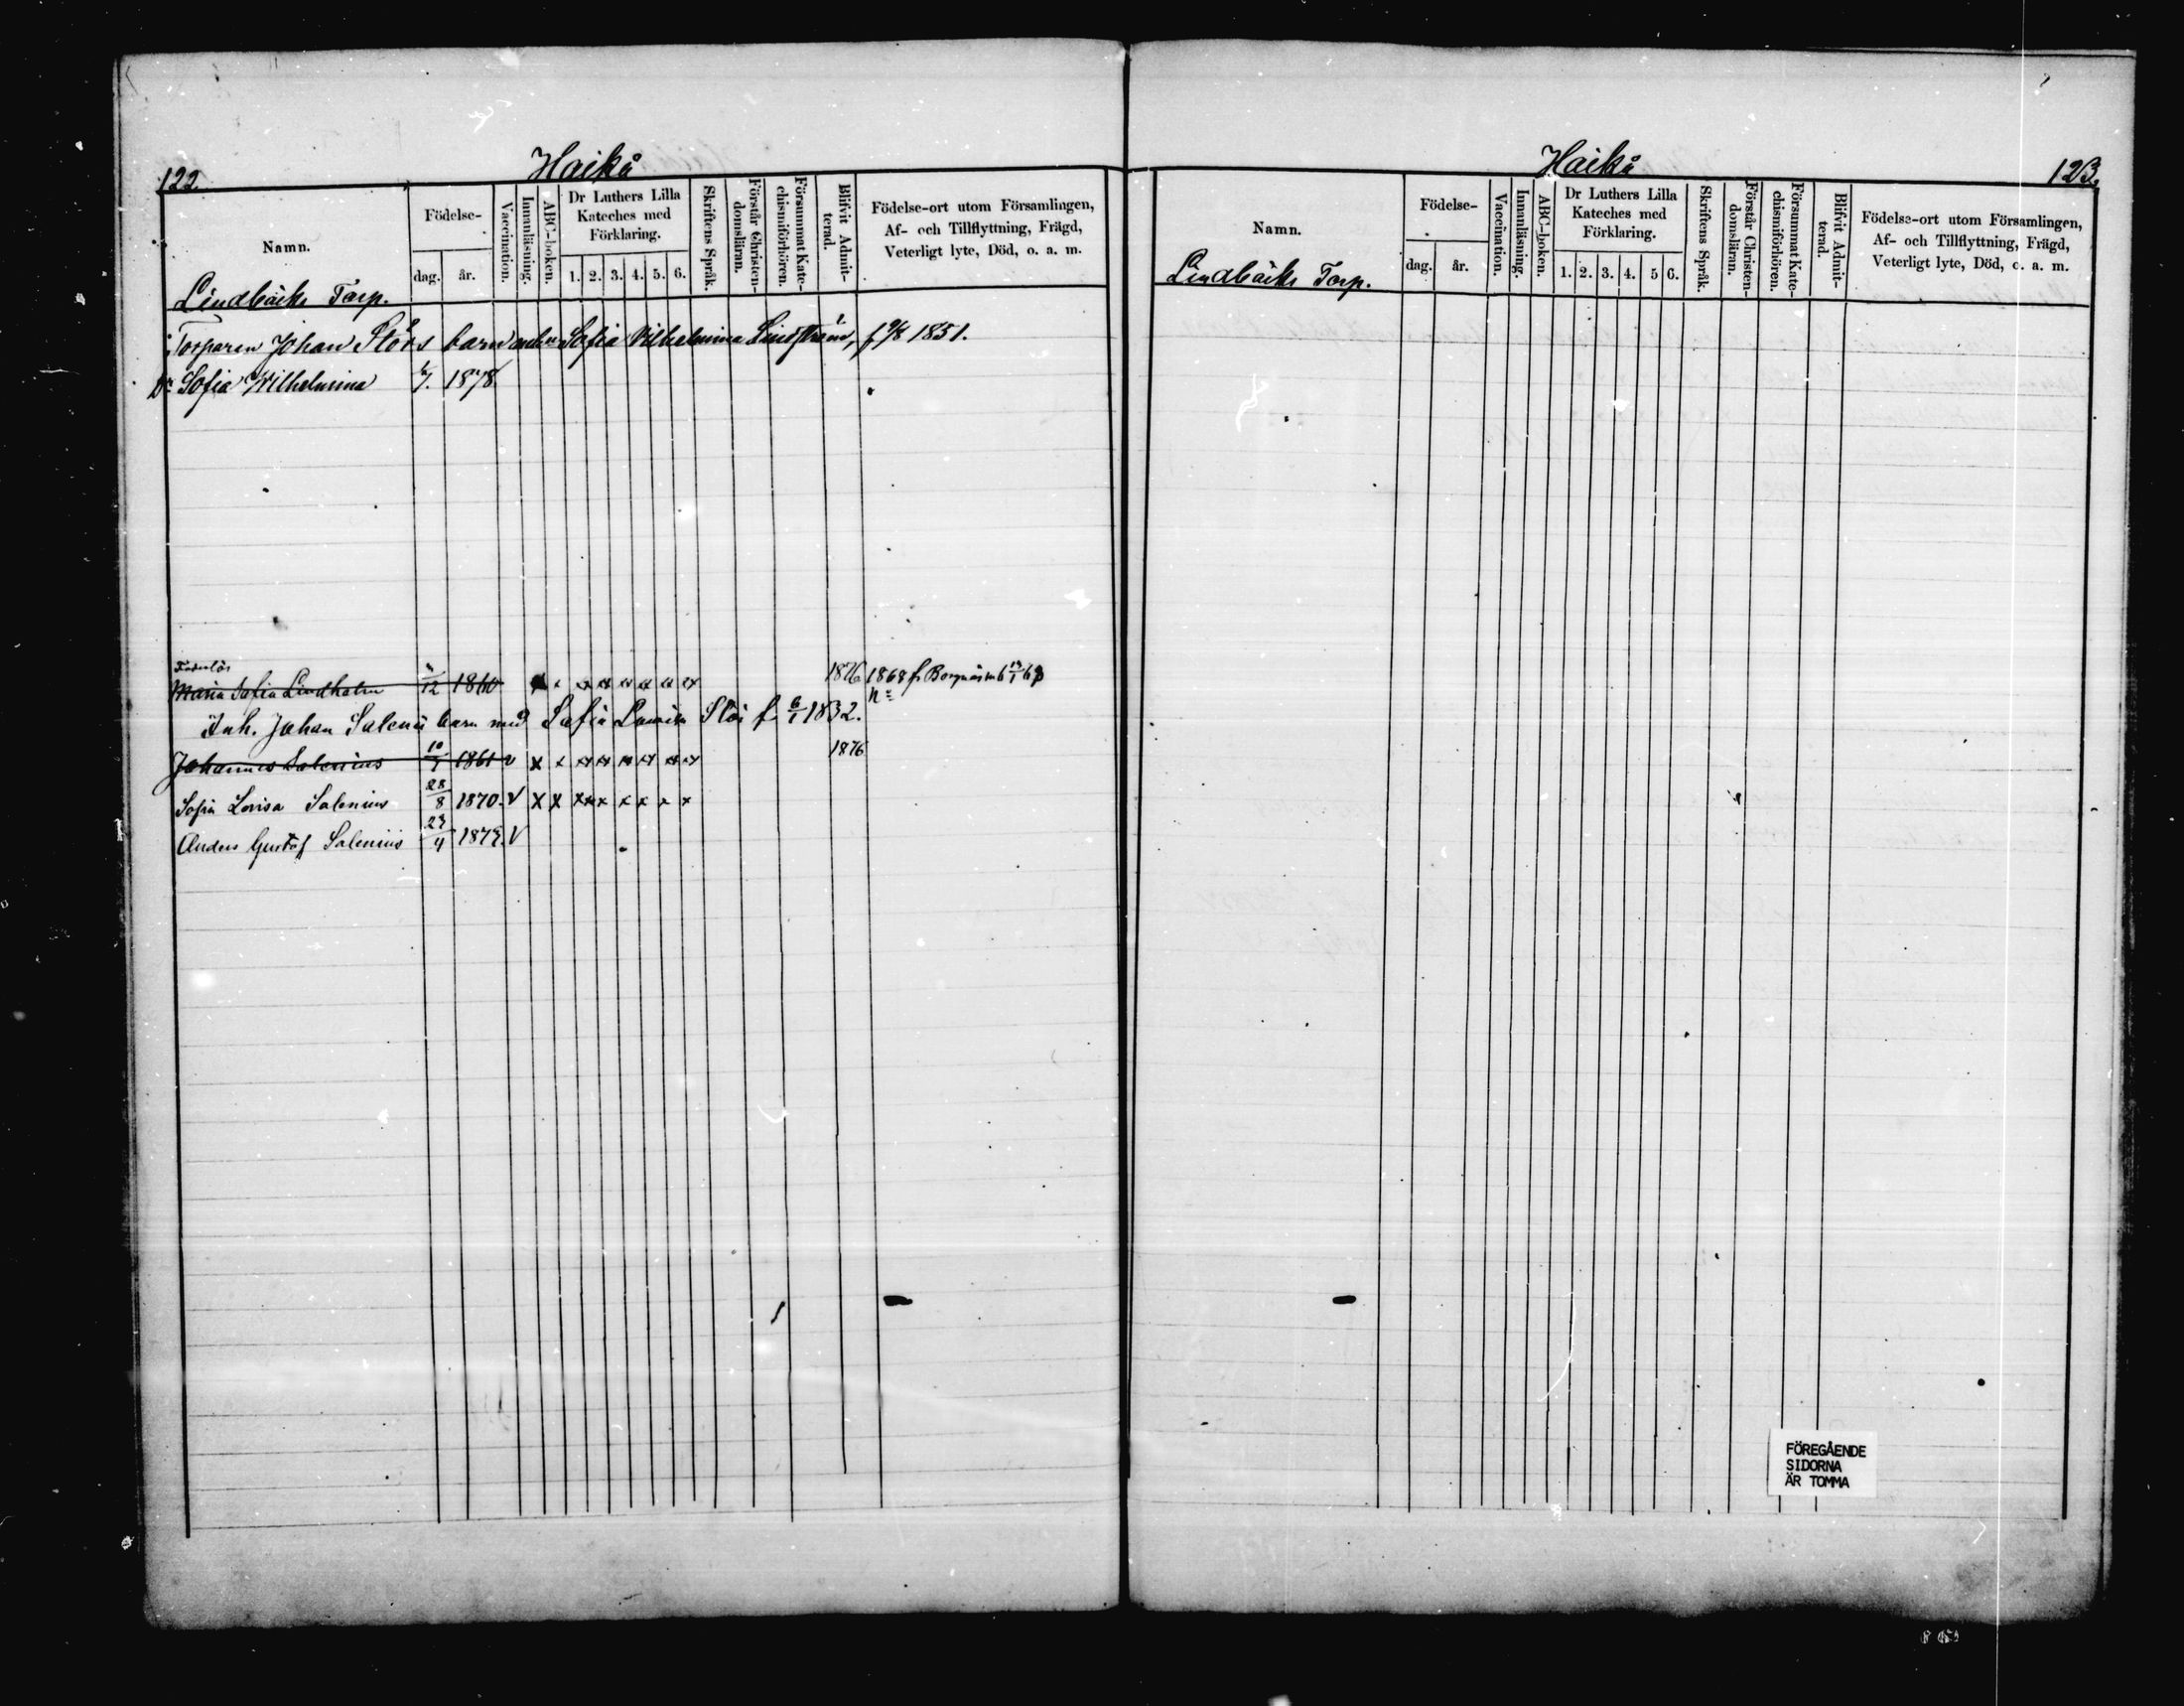 122 Haikå
Namn. Födelse- dag. år. Vaccination. Innanläsning. ABC-boken. Dr Luthers Lilla Kateches med Förklaring. 1. 2. 3. 4. 5. 6. Skriftens Språk. Förstår Christen-domsläran. Försummat Kate-chismiförhören. Blifvit Admit-terad. Födelse-ort utom Församlingen, Af- och Tillflyttning, Frägd, Veterligt lyte, Död, o. a. m.
Lindbäcks Torp.
Torparen Johan Slörs barn med Sofia Vilhelmina Lindström, 1851.
Dr Sofia Wilhelmina 1878
Maria Sofia Lindholm 12 1860 x x x x x x x x 1876 1868 fr
Inh. Johan Salenii barn med Sofia Lovisa Slör f. 6/1 1832.
Johannes Salenius 1861 v x x x x x x x x 1876
Sofia Lovisa Salenius 28/8 1870. V x x x x x x x x x
Anders Gustaf Salenius V
Haikå 123.
Namn. Födelse- dag. år. Vaccination. Innanläsning. ABC-boken. Dr Luthers Lilla Kateches med Förklaring. 1. 2. 3. 4. 5 6. Skriftens Språk. Förstår Christen-domsläran. Försummat Kate-chismiförhören. Blifvit Admit-terad. Födelse-ort utom Församlingen, Af- och Tillflyttning, Frägd, Veterligt lyte, Död, o. a. m.
Lindbäcks Torp.
FÖREGÅENDE
SIDORNA
ÄR TOMMA